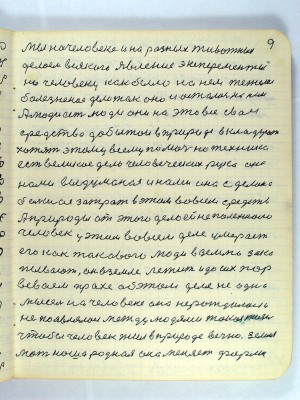 9
Мы на человеке и на разных животных
делаем всякого явление эксперементы
на человеку как было на нем тяжело
болезненое дел так оно и осталось на нем
А люди ест люди они на это все свои
средство добытои в природе вкладывают
хотят этому всему помоч но техника
ест великое дело человеческих рука она
нами выдумская и нами она сделана
больше затрат в этом во всем средств
А природы от этого дела ей не положено
человек у этим во всем деле умирает
его как такового люди в землю зако
пывают, он в земле лежит и до сих пор
в своем прахе об этом деле не одна
мысел на человеке она нерождалась
не появлялас между людями такая мысл
чтобы человек жил в природе вечно, земля
мат наша родная она меняет формы